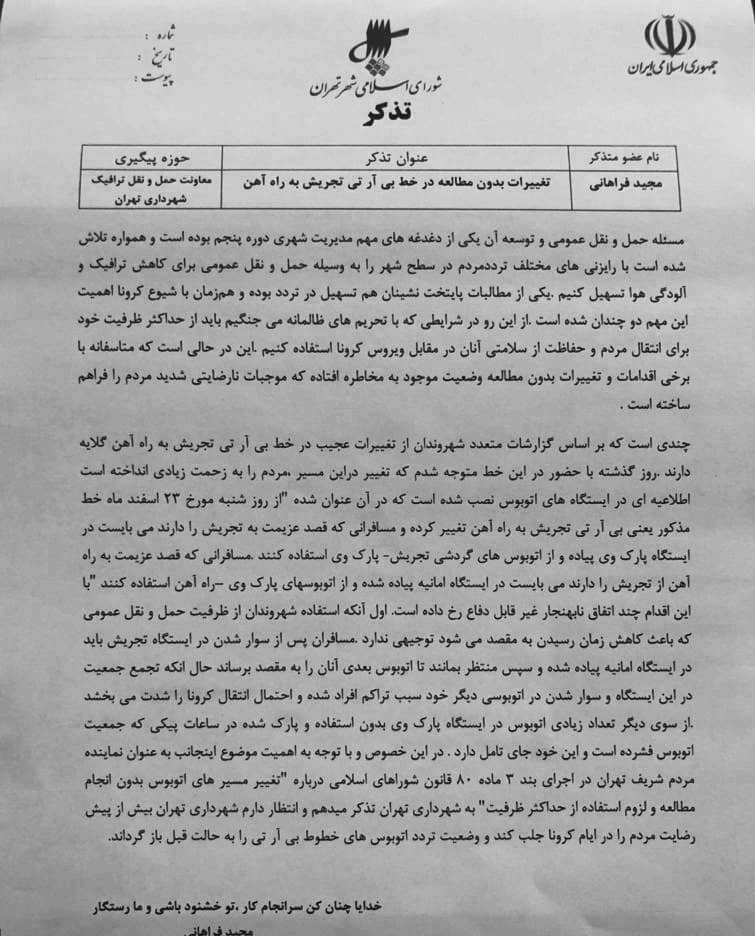 جمهوری اسلامی ایران
شورای اسلامی شهر تهران
شماره :
تاریخ :
پیوست :
تذکر
نام عضو متذکر
عنوان تذکر
حوزه پیگیری
مجید فراهانی
تغییرات بدون مطالعه در خط بی آر تی تجریش به راه آهن
معاونت حمل و نقل ترافیک
شهرداری تهران
مسئله حمل و نقل عمومی و توسعه آن یکی از دغدغه های مهم مدیریت شهری دوره پنجم بوده است و همواره تلاش
شده است با رایزنی های مختلف ترددمردم در سطح شهر را به وسیله حمل و نقل عمومی برای کاهش ترافیک و
آلودگی هوا تسهیل کنیم .یکی از مطالبات پایتخت نشینان هم تسهیل در تردد بوده و همزمان با شیوع کرونا اهمیت
این مهم دو چندان شده است .از این رو در شرایطی که با تحریم های ظالمانه می جنگیم باید از حداکثر ظرفیت خود
برای انتقال مردم و حفاظت از سلامتی آنان در مقابل ویروس کرونا استفاده کنیم .این در حالی است که متاسفانه با
برخی اقدامات و تغییرات بدون مطالعه وضعیت موجود به مخاطره افتاده که موجبات نارضایتی شدید مردم را فراهم
ساخته است .
چندی است که بر اساس گزارشات متعدد شهروندان از تغییرات عجیب در خط بی آر تی تجریش به راه آهن گلایه
دارند .روز گذشته با حضور در این خط متوجه شدم که تغییر دراین مسیر ،مردم را به زحمت زیادی انداخته است
اطلاعیه ای در ایستگاه های اتوبوس نصب شده است که در آن عنوان شده "از روز شنبه مورخ ۲۳ اسفند ماه خط
مذکور یعنی بی آر تی تجریش به راه آهن تغییر کرده و مسافرانی که قصد عزیمت به تجریش را دارند می بایست در
ایستگاه پارک وی پیاده و از اتوبوس های گردشی تجریش- پارک وی استفاده کنند .مسافرانی که قصد عزیمت به راه
آهن از تجریش را دارند می بایست در ایستگاه امانیه پیاده شده و از اتوبوسهای پارک وی –راه آهن استفاده کنند "با
این اقدام چند اتفاق نابهنجار غیر قابل دفاع رخ داده است. اول آنکه استفاده شهروندان از ظرفیت حمل و نقل عمومی
که باعث کاهش زمان رسیدن به مقصد می شود توجیهی ندارد .مسافران پس از سوار شدن در ایستگاه تجریش باید
در ایستگاه امانیه پیاده شده و سپس منتظر بمانند تا اتوبوس بعدی آنان را به مقصد برساند حال انکه تجمع جمعیت
در این ایستگاه و سوار شدن در اتوبوسی دیگر خود سبب تراکم افراد شده و احتمال انتقال کرونا را شدت می بخشد
.از سوی دیگر تعداد زیادی اتوبوس در ایستگاه پارک وی بدون استفاده و پارک شده در ساعات پیکی که جمعیت
اتوبوس فشرده است و این خود جای تامل دارد . در این خصوص و با توجه به اهمیت موضوع اینجانب به عنوان نماینده
مردم شریف تهران در اجرای بند ۳ ماده ۸۰ قانون شوراهای اسلامی درباره "تغییر مسیر های اتوبوس بدون انجام
مطالعه و لزوم استفاده از حداکثر ظرفیت" به شهرداری تهران تذکر میدهم و انتظار دارم شهرداری تهران بیش از پیش
رضایت مردم را در ایام کرونا جلب کند و وضعیت تردد اتوبوس های خطوط بی آر تی را به حالت قبل باز گرداند.
خدایا چنان کن سرانجام کار ،تو خشنود باشی و ما رستگار
مجید فراهانی